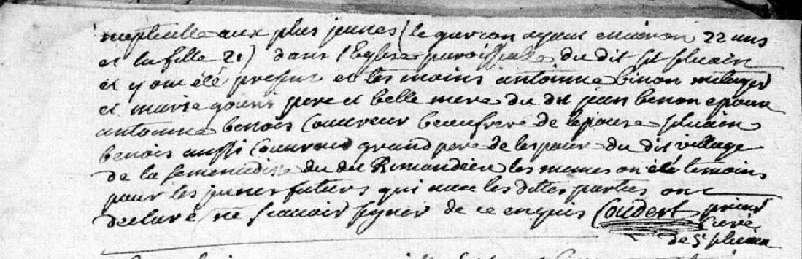 nuptialle aux plus jeunes (le garcon ayant environ 22 ans
et la fille 20) dans l'Eglise paroissialle du dit st silvain
et y ont été presens et temoins antoinne binon metayer
et marie gouni pere et belle mere du dit jean benon epoux
antoinne benois couvreur beaufrere de lepouse silvain
benois aussi couvreur grand pere de lepouse du dit village
de la du dit les memes ont été temoins
pour les jeunes futurs qui avec les dittes parties ont
declaré ne scavoir signer de ce enquis Coudert prieur
curé
de St silvain